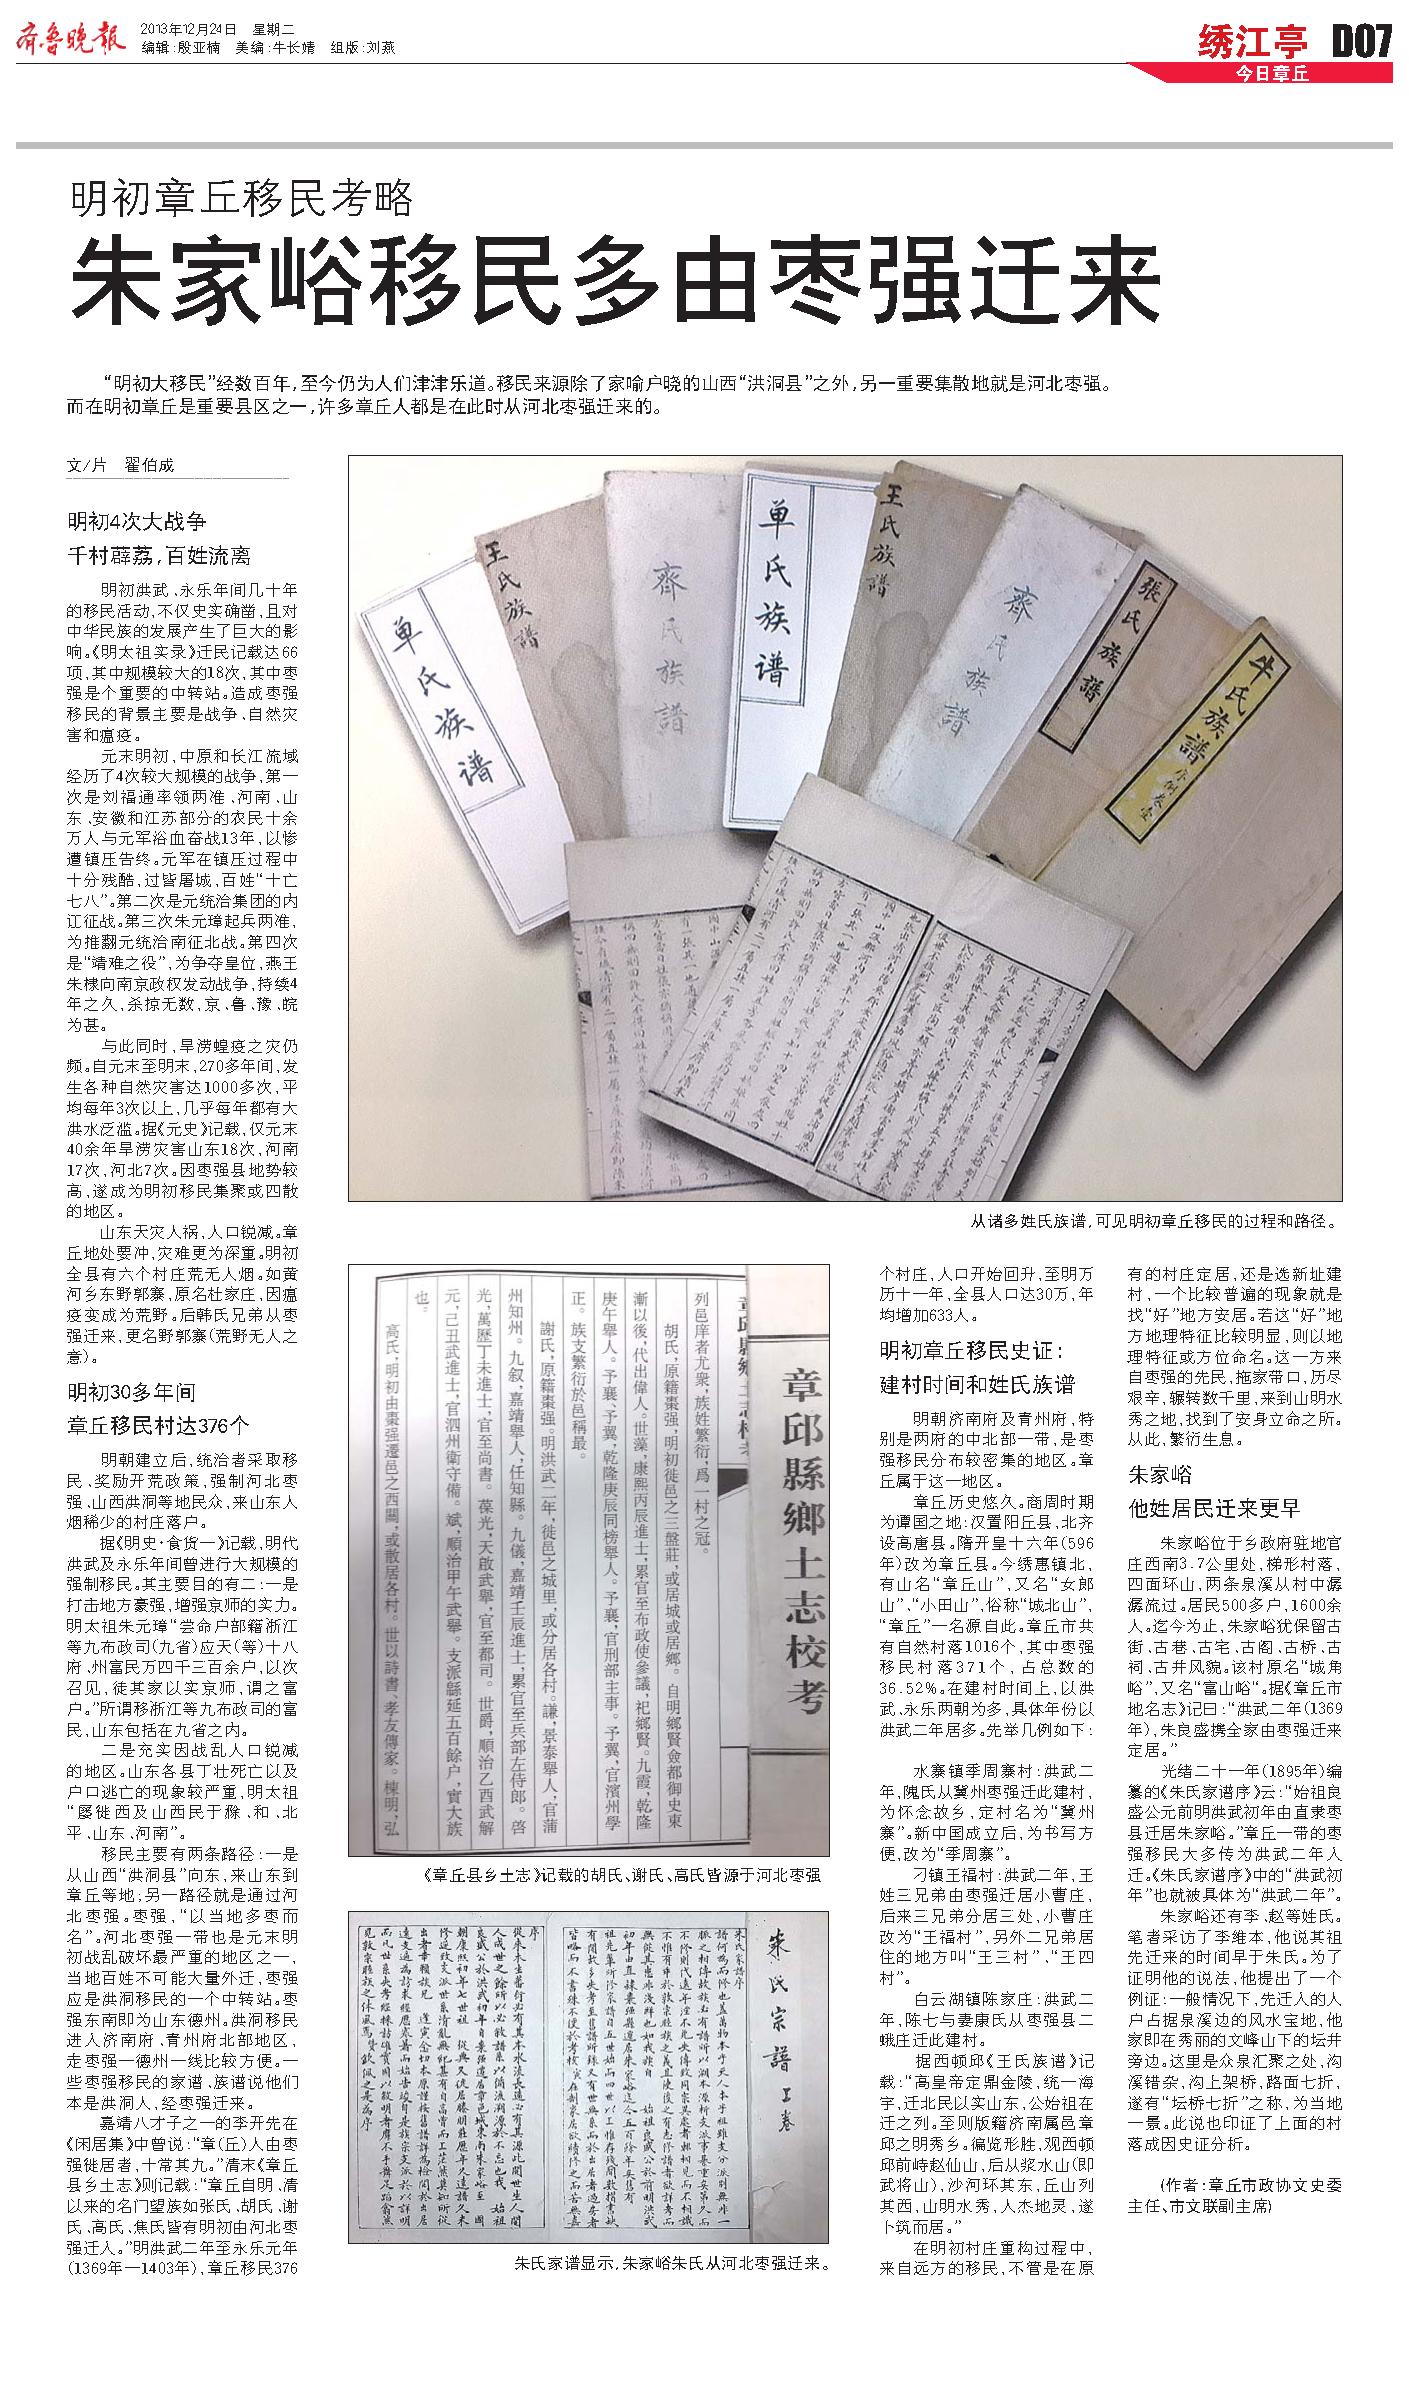 齐鲁晚报
2013年12月24日 星期二
编辑:殷亚楠 美编:牛长婧 组版:刘燕
绣江亭 D07
今日章丘
明初章丘移民考略
朱家峪移民多由枣强迁来
“明初大移民”经数百年,至今仍为人们津津乐道。移民来源除了家喻户晓的山西“洪洞县”之外,另一重要集散地就是河北枣强。
而在明初章丘是重要县区之一,许多章丘人都是在此时从河北枣强迁来的。
文/片 翟伯成
明初4次大战争
千村薜荔,百姓流离
明初洪武、永乐年间几十年
的移民活动,不仅史实确凿,且对
中华民族的发展产生了巨大的影
响。《明太祖实录》迁民记载达66
项,其中规模较大的18次,其中枣
强是个重要的中转站。造成枣强
移民的背景主要是战争、自然灾
害和瘟疫。
元末明初,中原和长江流域
经历了4次较大规模的战争,第一
次是刘福通率领两淮、河南、山
东、安徽和江苏部分的农民十余
万人与元军浴血奋战13年,以惨
遭镇压告终。元军在镇压过程中
十分残酷,过皆屠城,百姓“十亡
七八”。第二次是元统治集团的内
讧征战。第三次朱元璋起兵两淮,
为推翻元统治南征北战。第四次
是“靖难之役”,为争夺皇位,燕王
朱棣向南京政权发动战争,持续4
年之久,杀掠无数,京、鲁、豫、皖
为甚。
与此同时,旱涝蝗疫之灾仍
频。自元末至明末,270多年间,发
生各种自然灾害达1000多次,平
均每年3次以上,几乎每年都有大
洪水泛滥。据《元史》记载,仅元末
40余年旱涝灾害山东18次,河南
17次,河北7次。因枣强县地势较
高,遂成为明初移民集聚或四散
的地区。
山东天灾人祸,人口锐减。章
丘地处要冲,灾难更为深重。明初
全县有六个村庄荒无人烟。如黄
河乡东野郭寨,原名杜家庄,因瘟
疫变成为荒野。后韩氏兄弟从枣
强迁来,更名野郭寨(荒野无人之
意)。
明初30多年间
章丘移民村达376个
明朝建立后,统治者采取移
民、奖励开荒政策,强制河北枣
强、山西洪洞等地民众,来山东人
烟稀少的村庄落户。
据《明史·食货一》记载,明代
洪武及永乐年间曾进行大规模的
强制移民。其主要目的有二:一是
打击地方豪强,增强京师的实力。
明太祖朱元璋“尝命户部籍浙江
等九布政司(九省)应天(等)十八
府、州富民万四千三百余户,以次
召见,徒其家以实京师,谓之富
户。”所谓移浙江等九布政司的富
民,山东包括在九省之内。
二是充实因战乱人口锐减
的地区。山东各县丁壮死亡以及
户口逃亡的现象较严重,明太祖
“屡徙西及山西民于滁、和、北
平、山东、河南”。
移民主要有两条路径:一是
从山西“洪洞县”向东,来山东到
章丘等地;另一路径就是通过河
北枣强。枣强,“以当地多枣而
名”。河北枣强一带也是元末明
初战乱破坏最严重的地区之一,
当地百姓不可能大量外迁,枣强
应是洪洞移民的一个中转站。枣
强东南即为山东德州。洪洞移民
进入济南府、青州府北部地区,
走枣强—德州一线比较方便。一
些枣强移民的家谱、族谱说他们
本是洪洞人,经枣强迁来。
嘉靖八才子之一的李开先在
《闲居集》中曾说:“章(丘)人由枣
强徙居者,十常其九。”清末《章丘
县乡土志》则记载:“章丘自明、清
以来的名门望族如张氏、胡氏、谢
氏、高氏、焦氏皆有明初由河北枣
强迁入。”明洪武二年至永乐元年
(1369年—1403年),章丘移民376
单氏族谱
王氏族谱
齊氏族譜
单氏族谱
王氏族譜
齊氏族譜
張氏族譜
牛氏族譜
从诸多姓氏族谱,可见明初章丘移民的过程和路径。
章邱縣鄉土志校考
列邑庠者尤衆,族姓繁衍,爲一村之冠。
胡氏,原籍棗强,明初徙邑之三盤莊,或居城或居鄉。自明鄉賢僉都御史東
漸以後,代出偉人。世藻,康熙丙辰進士,累官至布政使參議,祀鄉賢。九霞,乾隆
庚午舉人。予襄、予翼,乾隆庚辰同榜舉人。予襄,官刑部主事。予翼,官濱州學
正。族支繁衍於邑稱最。
謝氏,原籍棗强。明洪武二年,徙邑之城里,或分居各村。謙,景泰舉人,官蒲
州知州。九叙,嘉靖舉人,任知縣。九儀,嘉靖壬辰進士,累官至兵部左侍郎。啓
光,萬歷丁未進士,官至尚書。葆光,天啟武舉,官至都司。世爵,順治乙酉武解
元,己丑武進士,官泗州衛守備。斌,順治甲午武舉。支派縣延五百餘户,實大族
也。
高氏,明初由棗强遷邑之西關,或散居各村。世以詩書、孝友傳家。棟明,弘
《章丘县乡土志》记载的胡氏、谢氏、高氏皆源于河北枣强
朱氏宗譜 上卷
朱氏家譜序
朱氏家谱显示,朱家峪朱氏从河北枣强迁来。
个村庄,人口开始回升,至明万
历十一年,全县人口达30万,年
均增加633人。
明初章丘移民史证:
建村时间和姓氏族谱
明朝济南府及青州府,特
别是两府的中北部一带,是枣
强移民分布较密集的地区。章
丘属于这一地区。
章丘历史悠久。商周时期
为谭国之地:汉置阳丘县,北齐
设高唐县。隋开皇十六年(596
年)改为章丘县。今绣惠镇北,
有山名“章丘山”,又名“女郎
山”、“小田山”,俗称“城北山”,
“章丘”一名源自此。章丘市共
有自然村落1016个,其中枣强
移民村落371个,占总数的
36.52%。在建村时间上,以洪
武、永乐两朝为多,具体年份以
洪武二年居多。先举几例如下:
水寨镇季周寨村:洪武二
年,隗氏从冀州枣强迁此建村,
为怀念故乡,定村名为“冀州
寨”。新中国成立后,为书写方
便,改为“季周寨”。
刁镇王福村:洪武二年,王
姓三兄弟由枣强迁居小曹庄,
后来三兄弟分居三处,小曹庄
改为“王福村”,另外二兄弟居
住的地方叫“王三村”、“王四
村”。
白云湖镇陈家庄:洪武二
年,陈七与妻康氏从枣强县二
蛾庄迁此建村。
据西顿邱《王氏族谱》记
载:“高皇帝定鼎金陵,统一海
宇,迁北民以实山东,公始祖在
迁之列。至则版籍济南属邑章
邱之明秀乡。徧览形胜,观西顿
邱前峙赵仙山,后从浆水山(即
武将山),沙河环其东,丘山列
其西,山明水秀,人杰地灵,遂
卜筑而居。”
在明初村庄重构过程中,
来自远方的移民,不管是在原
有的村庄定居,还是选新址建
村,一个比较普遍的现象就是
找“好”地方安居。若这“好”地
方地理特征比较明显,则以地
理特征或方位命名。这一方来
自枣强的先民,拖家带口,历尽
艰辛,辗转数千里,来到山明水
秀之地,找到了安身立命之所。
从此,繁衍生息。
朱家峪
他姓居民迁来更早
朱家峪位于乡政府驻地官
庄西南3.7公里处,梯形村落,
四面环山,两条泉溪从村中潺
潺流过。居民500多户,1600余
人。迄今为止,朱家峪犹保留古
街、古巷、古宅、古阁、古桥、古
祠、古井风貌。该村原名“城角
峪”,又名“富山峪“。据《章丘市
地名志》记曰:“洪武二年(1369
年),朱良盛携全家由枣强迁来
定居。”
光绪二十一年(1895年)编
纂的《朱氏家谱序》云:“始祖良
盛公元前明洪武初年由直隶枣
县迁居朱家峪。”章丘一带的枣
强移民大多传为洪武二年入
迁。《朱氏家谱序》中的“洪武初
年”也就被具体为“洪武二年”。
朱家峪还有李、赵等姓氏。
笔者采访了李维本,他说其祖
先迁来的时间早于朱氏。为了
证明他的说法,他提出了一个
例证:一般情况下,先迁入的人
户占据泉溪边的风水宝地,他
家即在秀丽的文峰山下的坛井
旁边。这里是众泉汇聚之处,沟
溪错杂,沟上架桥,路面七折,
遂有“坛桥七折”之称,为当地
一景。此说也印证了上面的村
落成因史证分析。
(作者:章丘市政协文史委
主任、市文联副主席)